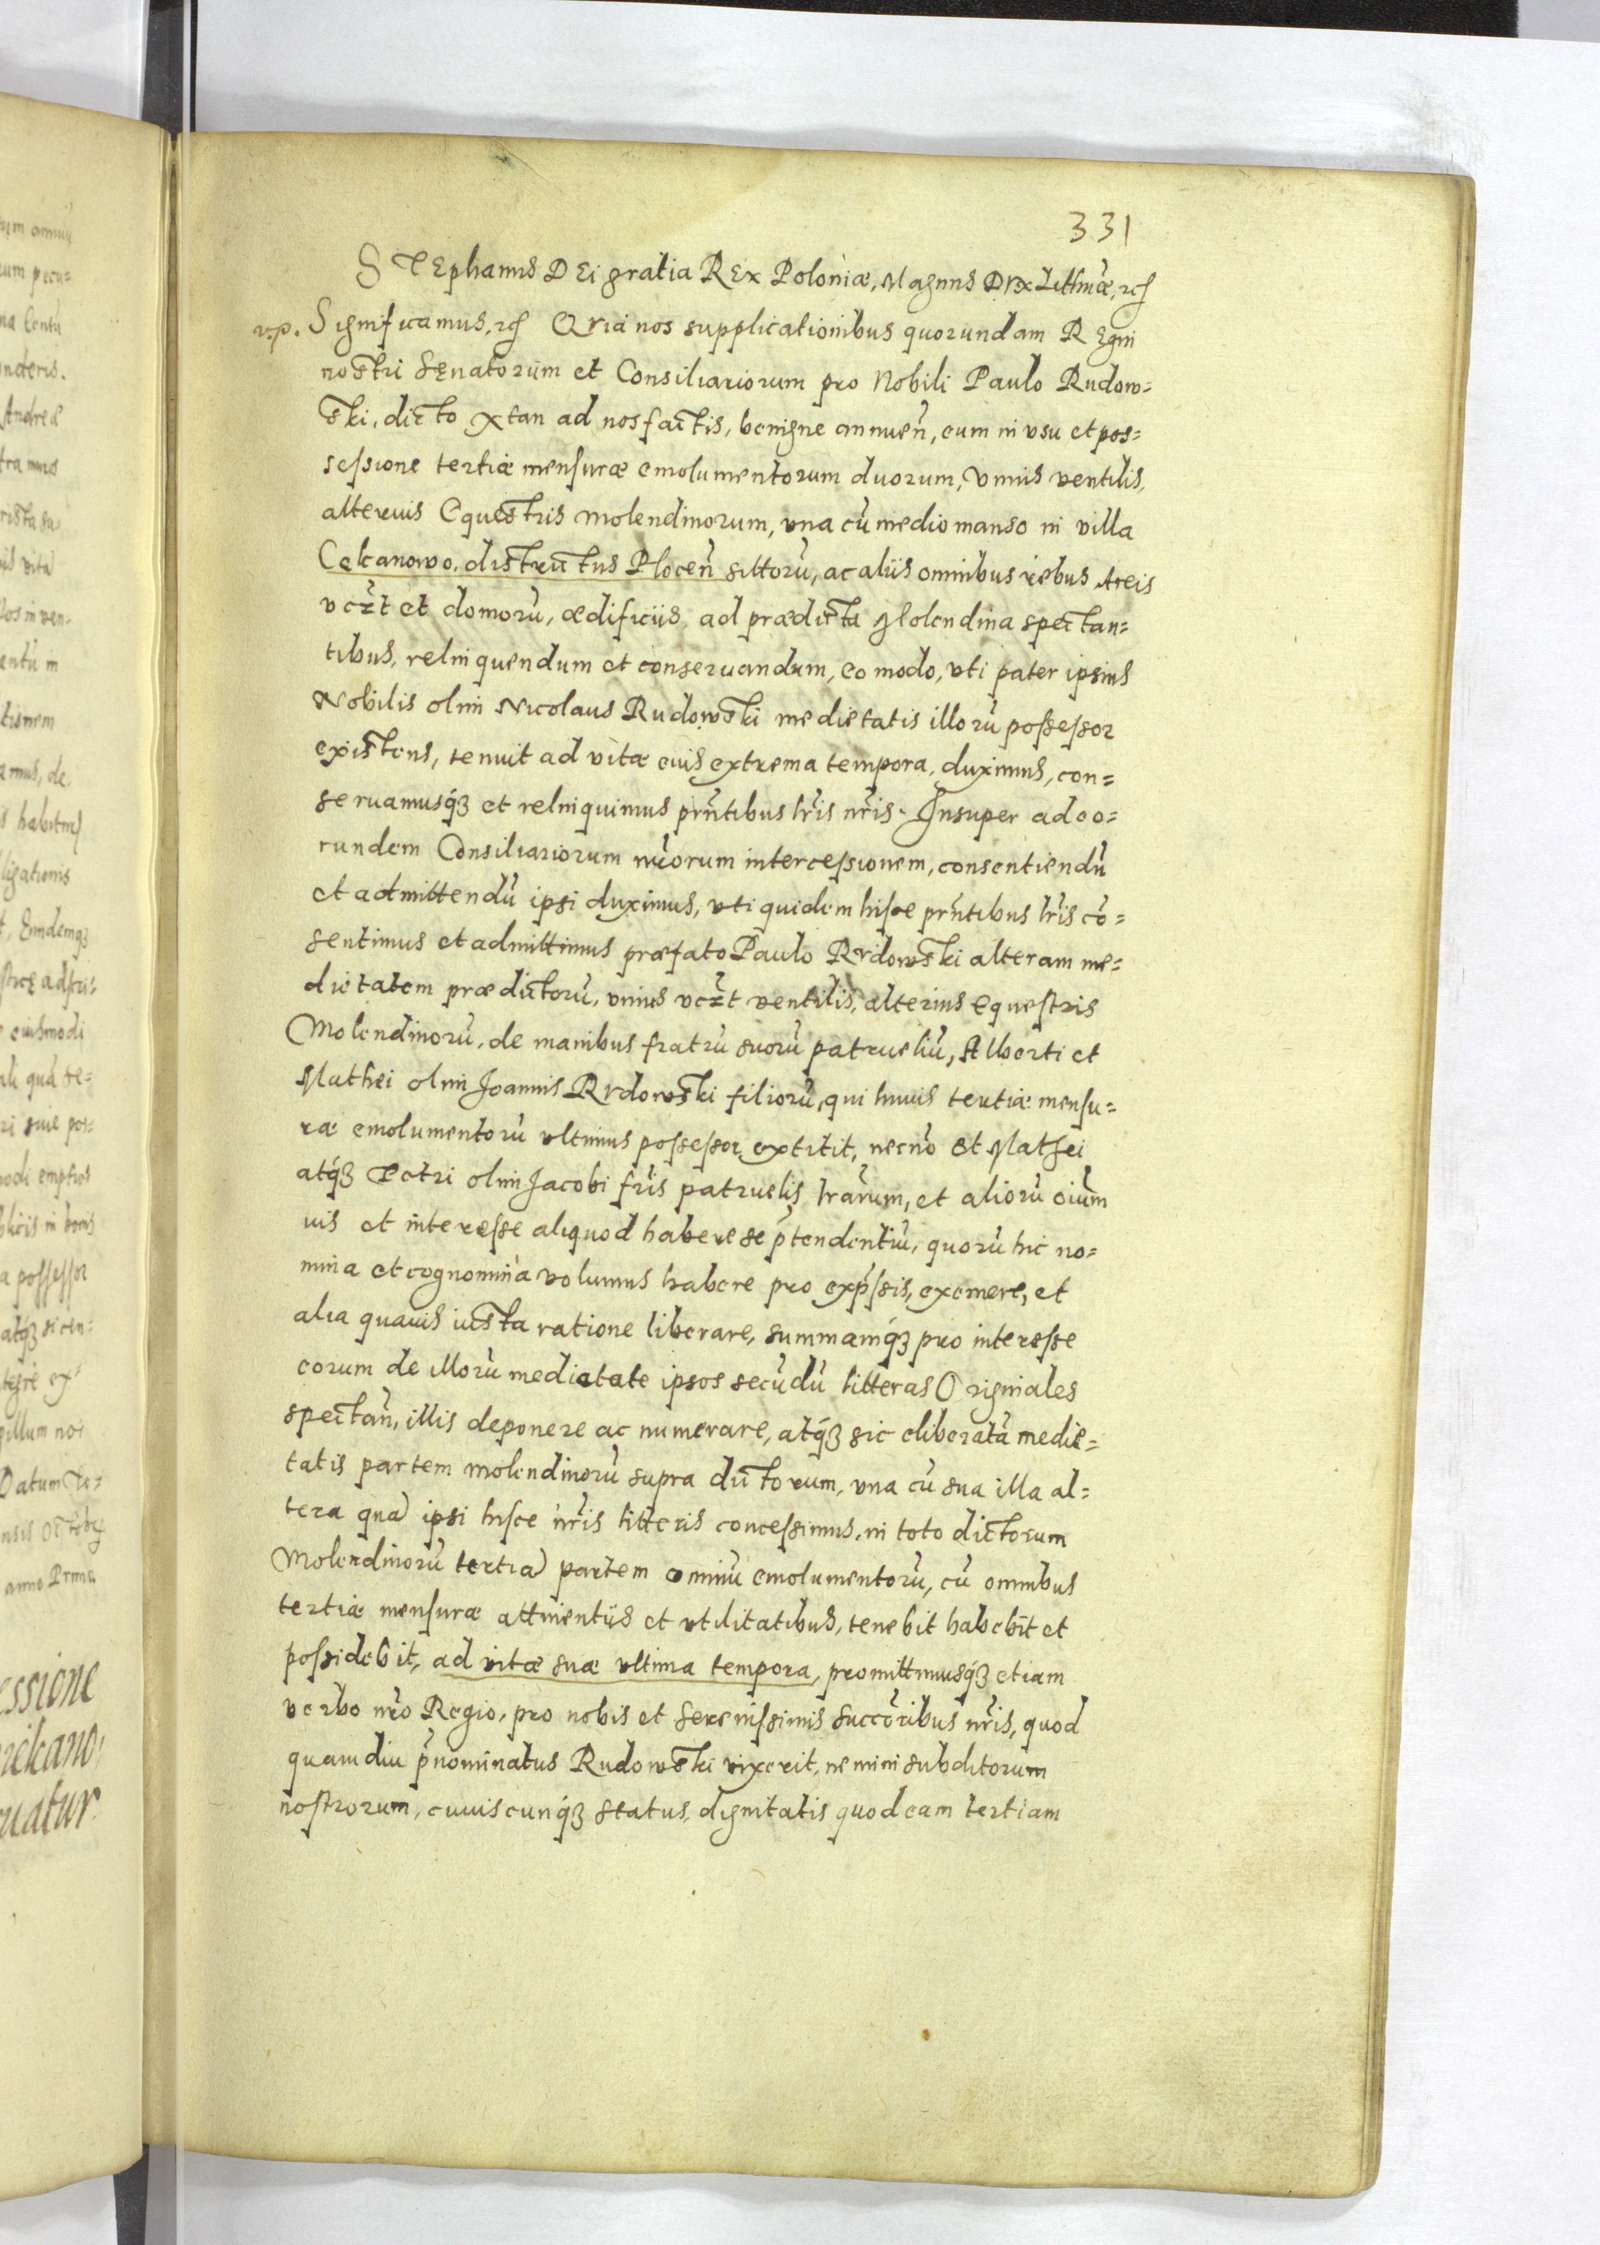 331
STEphanus DEi gratia REx Poloniæ, Magnus Dvx Lithuæ, etc
Significamus, etc Qvia nos supplicationibus quorundam REgni
nostri SEnatorum et Consiliariorum pro Nobili Paulo Rudow=
ski, dicto Xtan ad nos factis, benigne annueñ, eum in vsu et pos=
sessione tertiæ mensuræ emolumentorum duorum, vnius ventilis,
alterius Equestris molendinorum, vna cū medio manso in villa
Cekanowo, districtus Ploceñ sittorū, ac aliis omnibus rebus Areis
vczt et domorū, ædificiis, ad prædicta Molendina spectan=
tibus, relinquendum et conseruandum, eo modo, vti pater ipsius
Nobilis olim Nicolaus Rudowski medietatis illorū possessor
existens, tenuit ad vitæ eius extrema tempora, duximus, con=
seruamusq́ʒ et relinquimus prñtibus lr̃is nr̃is. Insuper ad eo=
rundem Consiliariorum nr̃orum intercessionem, consentiendū
et admittendū ipsi duximus, vti quidem hisce prñtibus lr̃is cō=
sentimus et admittimus præfato Paulo Rvdowski alteram me=
dietatem prædictorū, vnius vczt ventilis, alterius equestris
Molendinorū, de manibus fratrū suorū patrueliū, Alberti et
Mathei olim Joannis Rvdowski filiorū, qui huius tertiæ mensu=
ræ emolumentorū vltimus possessor extitit, necnō et Mathei
atq́ʒ Petri olim Jacobi fr̃is patruelis hr̃arum, et aliorū oiūm
ius et interesse aliquod habere se p̃tendentiū, quorū hic no=
mina et cognomina volumus habere pro exp̃ssis, eximere, et
alia quauis iusta ratione liberare, summamq́ʒ pro interesse
eorum de illorū medietate ipsos secūdū litteras Originales
spectañ, illis deponere ac numerare, atq́ʒ sic eliberatā medie=
tatis partem molendinorū supra dictorum, vna cū sua illa al=
tera quā ipsi hisce nr̃is litteris concessimus, in toto dictorum
Molendinorū tertiā partem omniū emolumentorū, cū omnibus
tertiæ mensuræ attinentiis et vtilitatibus, tenebit habebit et
possidebit, ad vitæ suæ vltima tempora, promittimusq́ʒ etiam
verbo nr̃o Regio, pro nobis et serenissimis succōribus nr̃is, quod
quamdiu p̃nominatus Rudowski vixerit, nemini subditorum
nostrorum, cuiuscunq́ʒ status, dignitatis quod eam tertiam